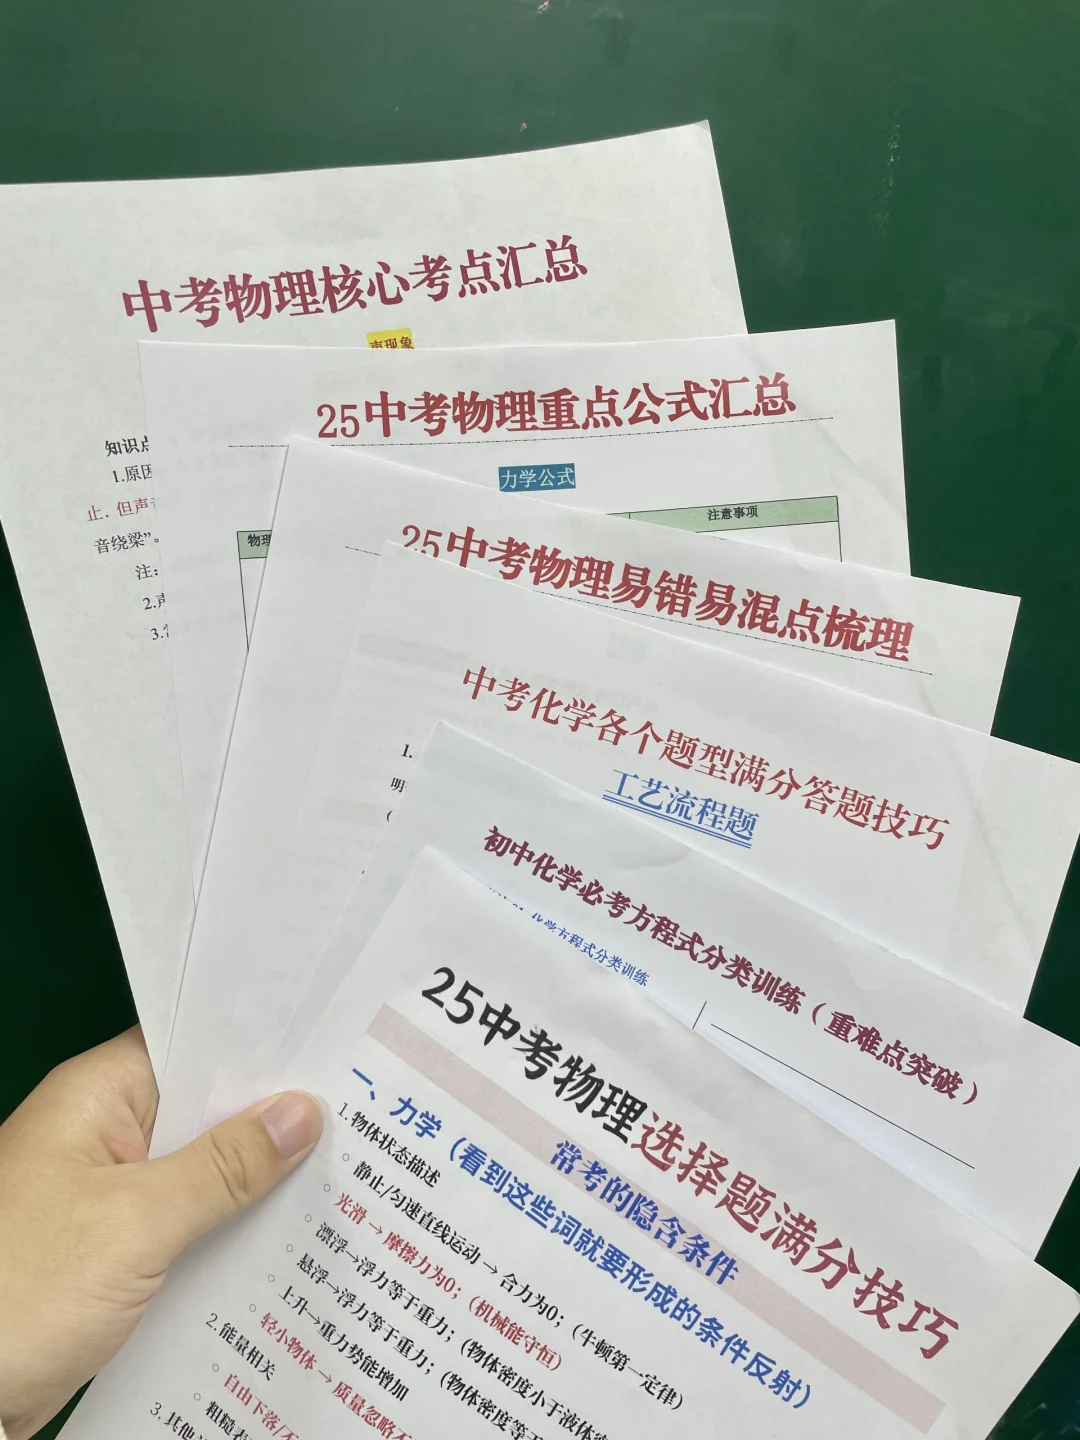 中考物理核心考点汇总
声现象
知识点
1.原因
止．但声音
音绕梁”。
注:
2.声
3.
25中考物理重点公式汇总
力学公式
物理
注意事项
25中考物理易错易混点梳理
1.
明
(
中考化学各个题型满分答题技巧
工艺流程题
初中化学必考方程式分类训练（重难点突破）
化学方程式分类训练
25中考物理选择题满分技巧
常考的隐含条件
一、力学（看到这些词就要形成的条件反射）
1.物体状态描述
○ 静止/匀速直线运动 → 合力为0;（牛顿第一定律）
○ 光滑 → 摩擦力为0;（机械能守恒）
○ 漂浮→浮力等于重力;（物体密度小于液体密
○ 悬浮→浮力等于重力;（物体密度等于
○ 上升→重力势能增加
○ 轻小物体 → 质量忽略不
2.能量相关
○ 自由下落/不
○ 粗糙表
3.其他